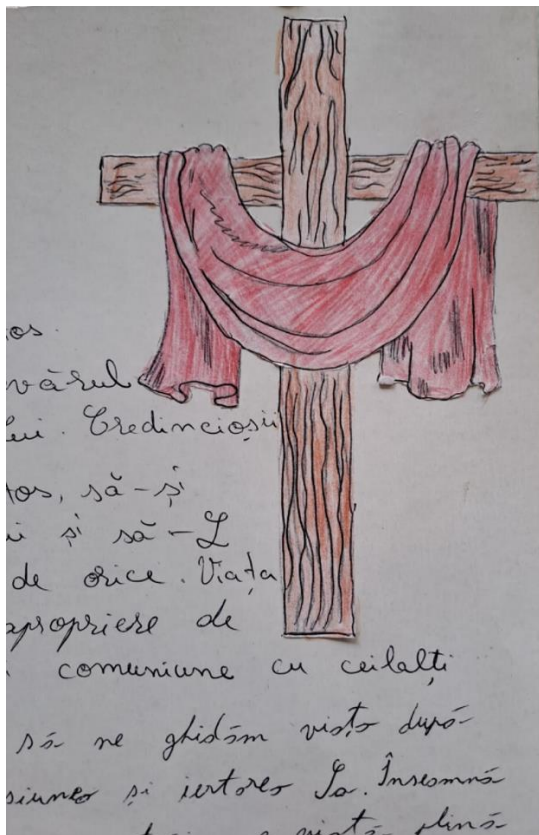 tos.
vărul
lui. Credincioșii
tos, să-și
și să-L
de orice. Viața
apropriere de
comuniune cu ceilalți
să ne ghidăm viața după
siunea și iertarea Sa. Înseamnă
viață plină